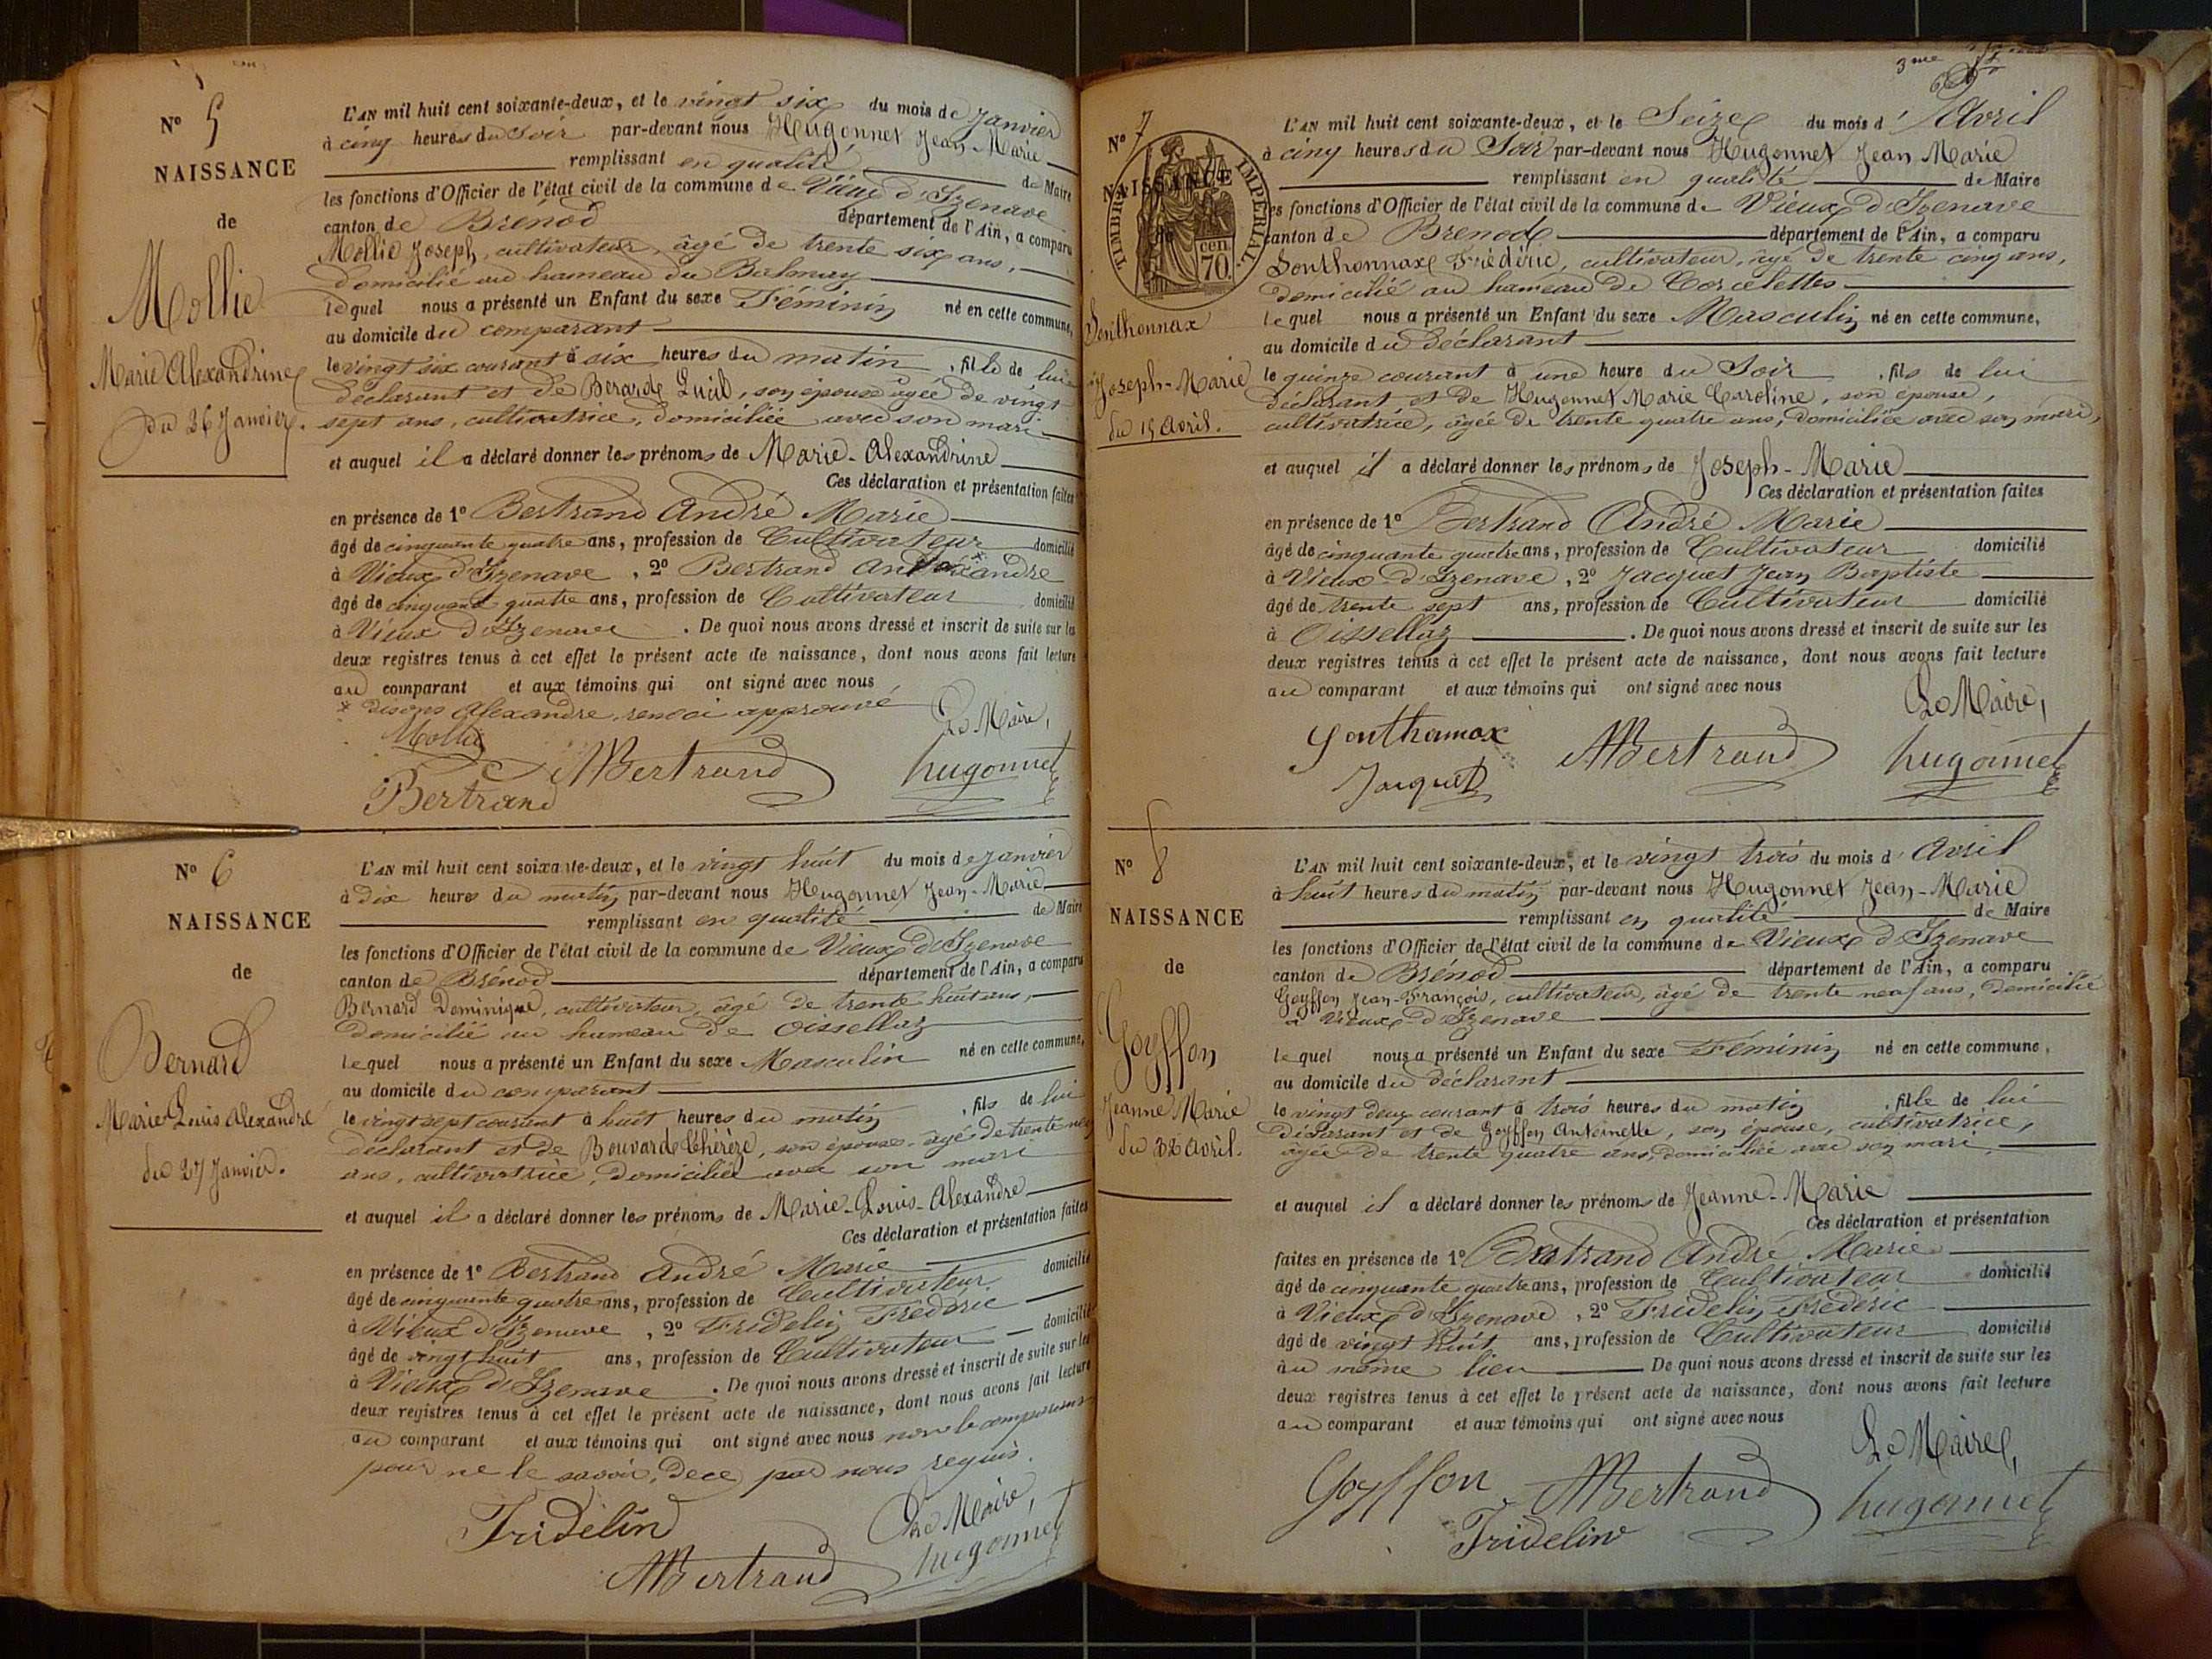 N° 5
NAISSANCE
de
Mollie
Marie Alexandrine
du 26 Janvier.
L'AN mil huit cent soixante-deux, et le vingt six du mois de Janvier
à cinq heures du Soir par-devant nous Hugonnet Jean Marie
remplissant en qualité de Maire
les fonctions d'Officier de l'état civil de la commune de Vieux d'Izenave
canton de Brénod département de l'Ain, a comparu
Mollie Joseph, cultivateur, âgé de trente six ans,
domicilié au hameau du Balmay
lequel nous a présenté un Enfant du sexe Féminin né en cette commune,
au domicile du comparant
le vingt six courant à six heures du matin, fille de lui
déclarant et de Berard Lucie, son épouse âgée de vingt
sept ans, cultivatrice, domiciliée avec son mari
et auquel il a déclaré donner les prénoms de Marie-Alexandrine
Ces déclaration et présentation faites
en présence de 1° Bertrand André Marie
âgé de cinquante quatre ans, profession de Cultivateur domicilié
à Vieux d'Izenave, 2° Bertrand andre
âgé de cinquante quatre ans, profession de Cultivateur domicilié
à Vieux d'Izenave. De quoi nous avons dressé et inscrit de suite sur les
deux registres tenus à cet effet le présent acte de naissance, dont nous avons fait lecture
au comparant et aux témoins qui ont signé avec nous
* disons Alexandre, renvoi approuvé
Le Maire,
Mollie
Bertrand
ABertrand
hugonnet
N° 6
NAISSANCE
de
Bernard
Marie Louis Alexandre
du 27 Janvier.
L'AN mil huit cent soixante-deux, et le vingt huit du mois de Janvier
à dix heures du matin par-devant nous Hugonnet Jean-Marie
remplissant en qualité de Maire
les fonctions d'Officier de l'état civil de la commune de Vieux d'Izenave
canton de Brénod département de l'Ain, a comparu
Bernard Dominique, cultivateur, âgé de trente huit ans,
domicilié au hameau de Oissellaz
lequel nous a présenté un Enfant du sexe Masculin né en cette commune,
au domicile du comparant
le vingt sept courant à huit heures du matin, fils de lui
déclarant et de Bouvard Thérèze, son épouse, âgé de trente neuf
ans, cultivatrice, domiciliée avec son mari
et auquel il a déclaré donner les prénoms de Marie-Louis-Alexandre
Ces déclaration et présentation faites
en présence de 1° Bertrand André Marie
âgé de cinquante quatre ans, profession de Cultivateur domicilié
à Vieux d'Izenave, 2° Fridelin Frédéric
âgé de vingt huit ans, profession de Cultivateur domicilié
à Vieux d'Izenave. De quoi nous avons dressé et inscrit de suite sur les
deux registres tenus à cet effet le présent acte de naissance, dont nous avons fait lecture
au comparant et aux témoins qui ont signé avec nous non le comparant
pour ne le savoir, de ce par nous requis.
Le Maire,
Fridelin
ABertrand
hugonnet
3me
N° 7
NAISSANCE
TIMBRE IMPERIAL
70 cen
Sonthonnax
Joseph-Marie
du 15 Avril.
L'AN mil huit cent soixante-deux, et le Seize du mois d'Avril
à cinq heures du Soir par-devant nous Hugonnet Jean Marie
remplissant en qualité de Maire
les fonctions d'Officier de l'état civil de la commune de Vieux d'Izenave
canton de Brenod département de l'Ain, a comparu
Sonthonnax Frédéric, cultivateur, âgé de trente cinq ans,
domicilié au hameau de Corcelettes
lequel nous a présenté un Enfant du sexe Masculin né en cette commune,
au domicile du déclarant
le quinze courant à une heure du Soir, fils de lui
déclarant et de Hugonnet Marie Caroline, son épouse,
cultivatrice, âgée de trente quatre ans, domiciliée avec son mari,
et auquel il a déclaré donner les prénoms de Joseph-Marie
Ces déclaration et présentation faites
en présence de 1° Bertrand André Marie
âgé de cinquante quatre ans, profession de Cultivateur domicilié
à Vieux d'Izenave, 2° Jacquet Jean Baptiste
âgé de trente sept ans, profession de Cultivateur domicilié
à Oissellaz. De quoi nous avons dressé et inscrit de suite sur les
deux registres tenus à cet effet le présent acte de naissance, dont nous avons fait lecture
au comparant et aux témoins qui ont signé avec nous
Le Maire,
Sonthonnax
Jacquet
ABertrand
hugonnet
N° 8
NAISSANCE
de
Goyffon
Jeanne Marie
du 22 Avril.
L'AN mil huit cent soixante-deux, et le vingt trois du mois d'Avril
à huit heures du matin par-devant nous Hugonnet Jean-Marie
remplissant en qualité de Maire
les fonctions d'Officier de l'état civil de la commune de Vieux d'Izenave
canton de Brénod département de l'Ain, a comparu
Goyffon Jean-François, cultivateur, âgé de trente neuf ans, domicilié
à Vieux d'Izenave
lequel nous a présenté un Enfant du sexe Féminin né en cette commune,
au domicile du déclarant
le vingt deux courant à trois heures du matin, fille de lui
déclarant et de Goyffon Antoinette, son épouse, cultivatrice,
âgée de trente quatre ans, domiciliée avec son mari,
et auquel il a déclaré donner les prénoms de Jeanne-Marie
Ces déclaration et présentation
faites en présence de 1° Bertrand André Marie
âgé de cinquante quatre ans, profession de Cultivateur domicilié
à Vieux d'Izenave, 2° Fridelin Frédéric
âgé de vingt huit ans, profession de Cultivateur domicilié
au même lieu De quoi nous avons dressé et inscrit de suite sur les
deux registres tenus à cet effet le présent acte de naissance, dont nous avons fait lecture
au comparant et aux témoins qui ont signé avec nous
Le Maire,
Goyffon
ABertrand
Fridelin
hugonnet